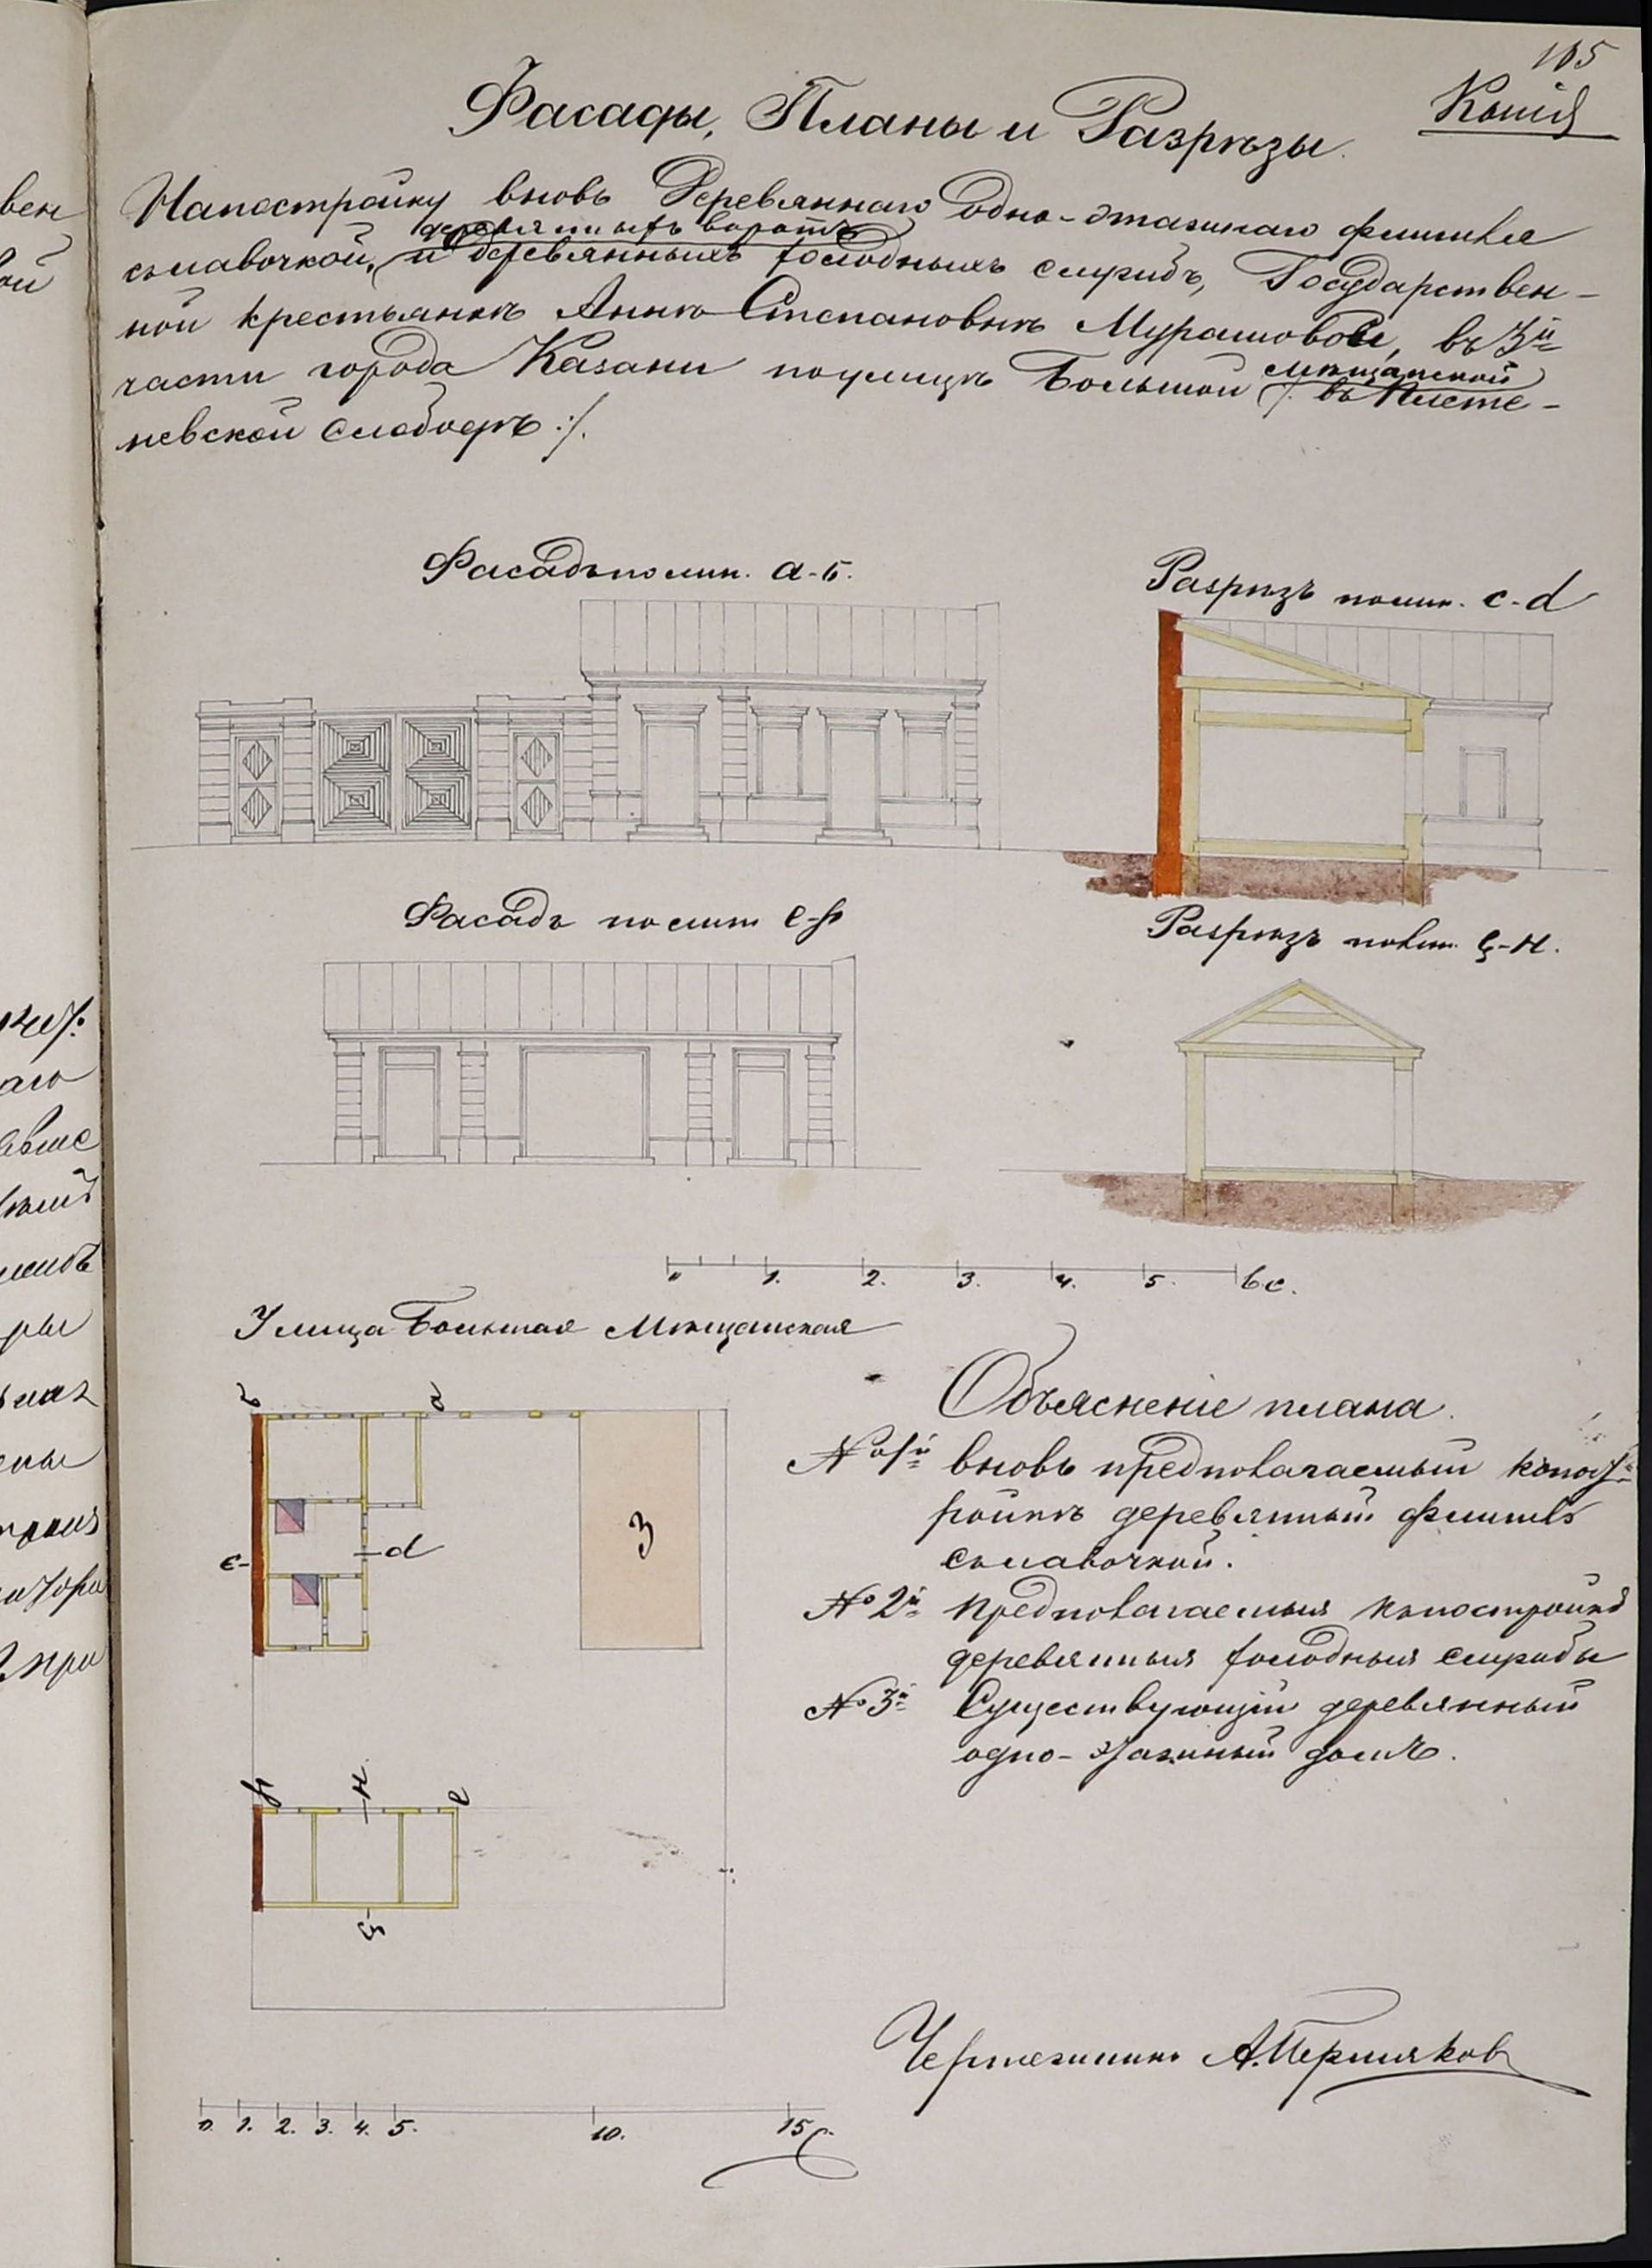 105
Копія
Фасады, Планы и Разрѣзы.
На постройку вновь деревяннаго одно-этажнаго флигеля
деревянныхъ воротъ
съ лавочкой, и деревянныхъ холодныхъ службъ, Государствен-
ной крестьянкѣ Аннѣ Степановнѣ Мурашовой, въ 3й
части города Казани по улицѣ Большой
Мѣщанской
/: въ Плете-
невской слободѣ :/.
Фасадъ по лин. a-б.
Разрѣзъ по лин. c-d
Фасадъ по лин e-f
Разрѣзъ по лин. g-н.
0 1. 2. 3. 4. 5. 6 с.
Улица Большая Мѣщанская
б a
Объясненіе плана.
№ 1й вновь предполагаемый к пост-
ройкѣ деревянный флигель
съ лавочкой.
№ 2й предполагаемыя к постройкѣ
деревянныя холодныя службы
№ 3й Существующій деревянный
одно-этажный домъ.
3
c- -d
f н e
g
Чертежникъ А. Пермяков
0 1. 2. 3. 4. 5. 10. 15 с.
вен
ой
аго